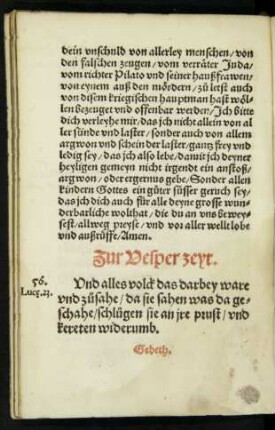 dein vnschuld von allerley menschen/von
den falschen zeugen/vom verräter Juda/
vom richter Pilato vnd seiner haußfrawen/
von eynem auß den mördern/zů letst auch
von disem kriegischen hauptman hast wöl-
len bezeuget vnd offenbar werden/Ich bitte
dich verleyhe mir/das ich nicht allein von al
ler sünde vnd laster/sonder auch von allem
argwon vnd schein der laster/gantz frey vnd
ledig sey/das ich also lebe/damit ich deyner
heyligen gemeyn nicht irgendt ein anstoß/
argwon/oder ergernus gebe/Sonder allen
kindern Gottes ein gůter süsser geruch sey/
das ich dich auch für alle deyne grosse wun-
derbarliche wolthat/die du an vns bewey-
sest/allweg preyse/vnd vor aller welt lobe
vnd außrüffe/Amen.
Zur Vesper zeyt.
56.
Luce.23.
Vnd alles volck das darbey ware
vnd zůsahe/da sie sahen was da ge-
schahe/schlůgen sie an jre prust/vnd
kereten widerumb.
Gebeth.